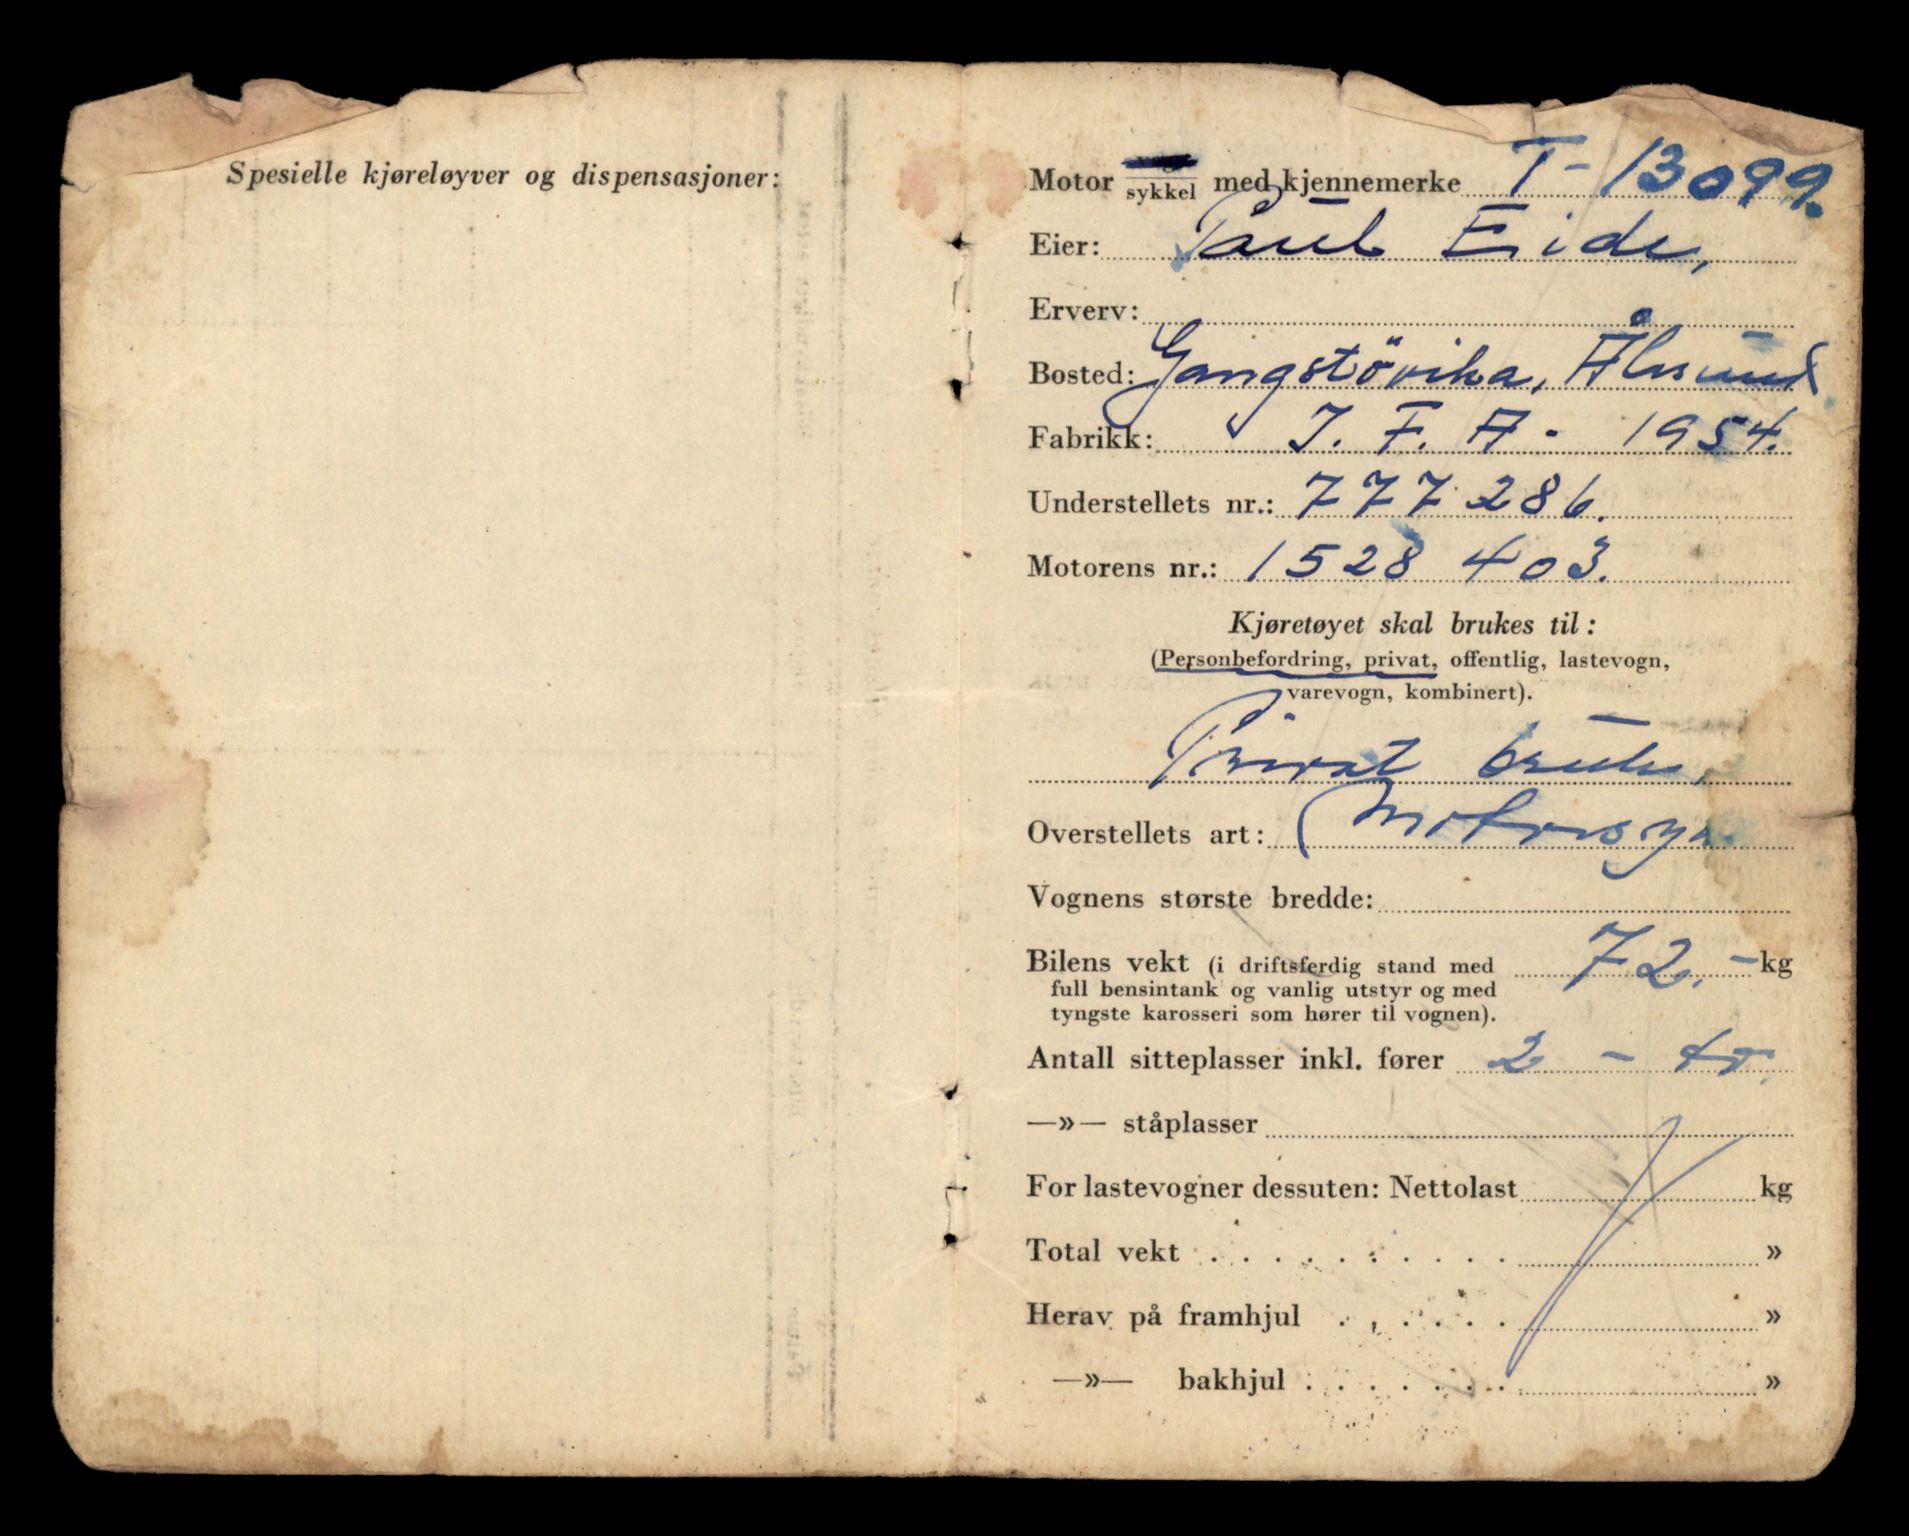 Spesielle kjøreløyver og dispensasjoner:
Motor sykkel med kjennemerke T-13099.
Eier: Paul Eide,
Erverv:
Bosted: Gangstövika, Ålesund
Fabrikk: I. F. A - 1954.
Understellets nr.: 777286.
Motorens nr.: 1528 403.
Kjøretøyet skal brukes til:
(Personbefordring, privat, offentlig, lastevogn,
varevogn, kombinert).
Privat bruk,
Overstellets art:
Vognens største bredde:
Bilens vekt (i driftsferdig stand med 72.- kg
full bensintank og vanlig utstyr og med
tyngste karosseri som hører til vognen).
Antall sitteplasser inkl. fører 2 - to.
—»— ståplasser
For lastevogner dessuten: Nettolast kg
Total vekt . . . . . . . . . . »
Herav på framhjul . . . . . . »
—»— bakhjul . . . . . . . »